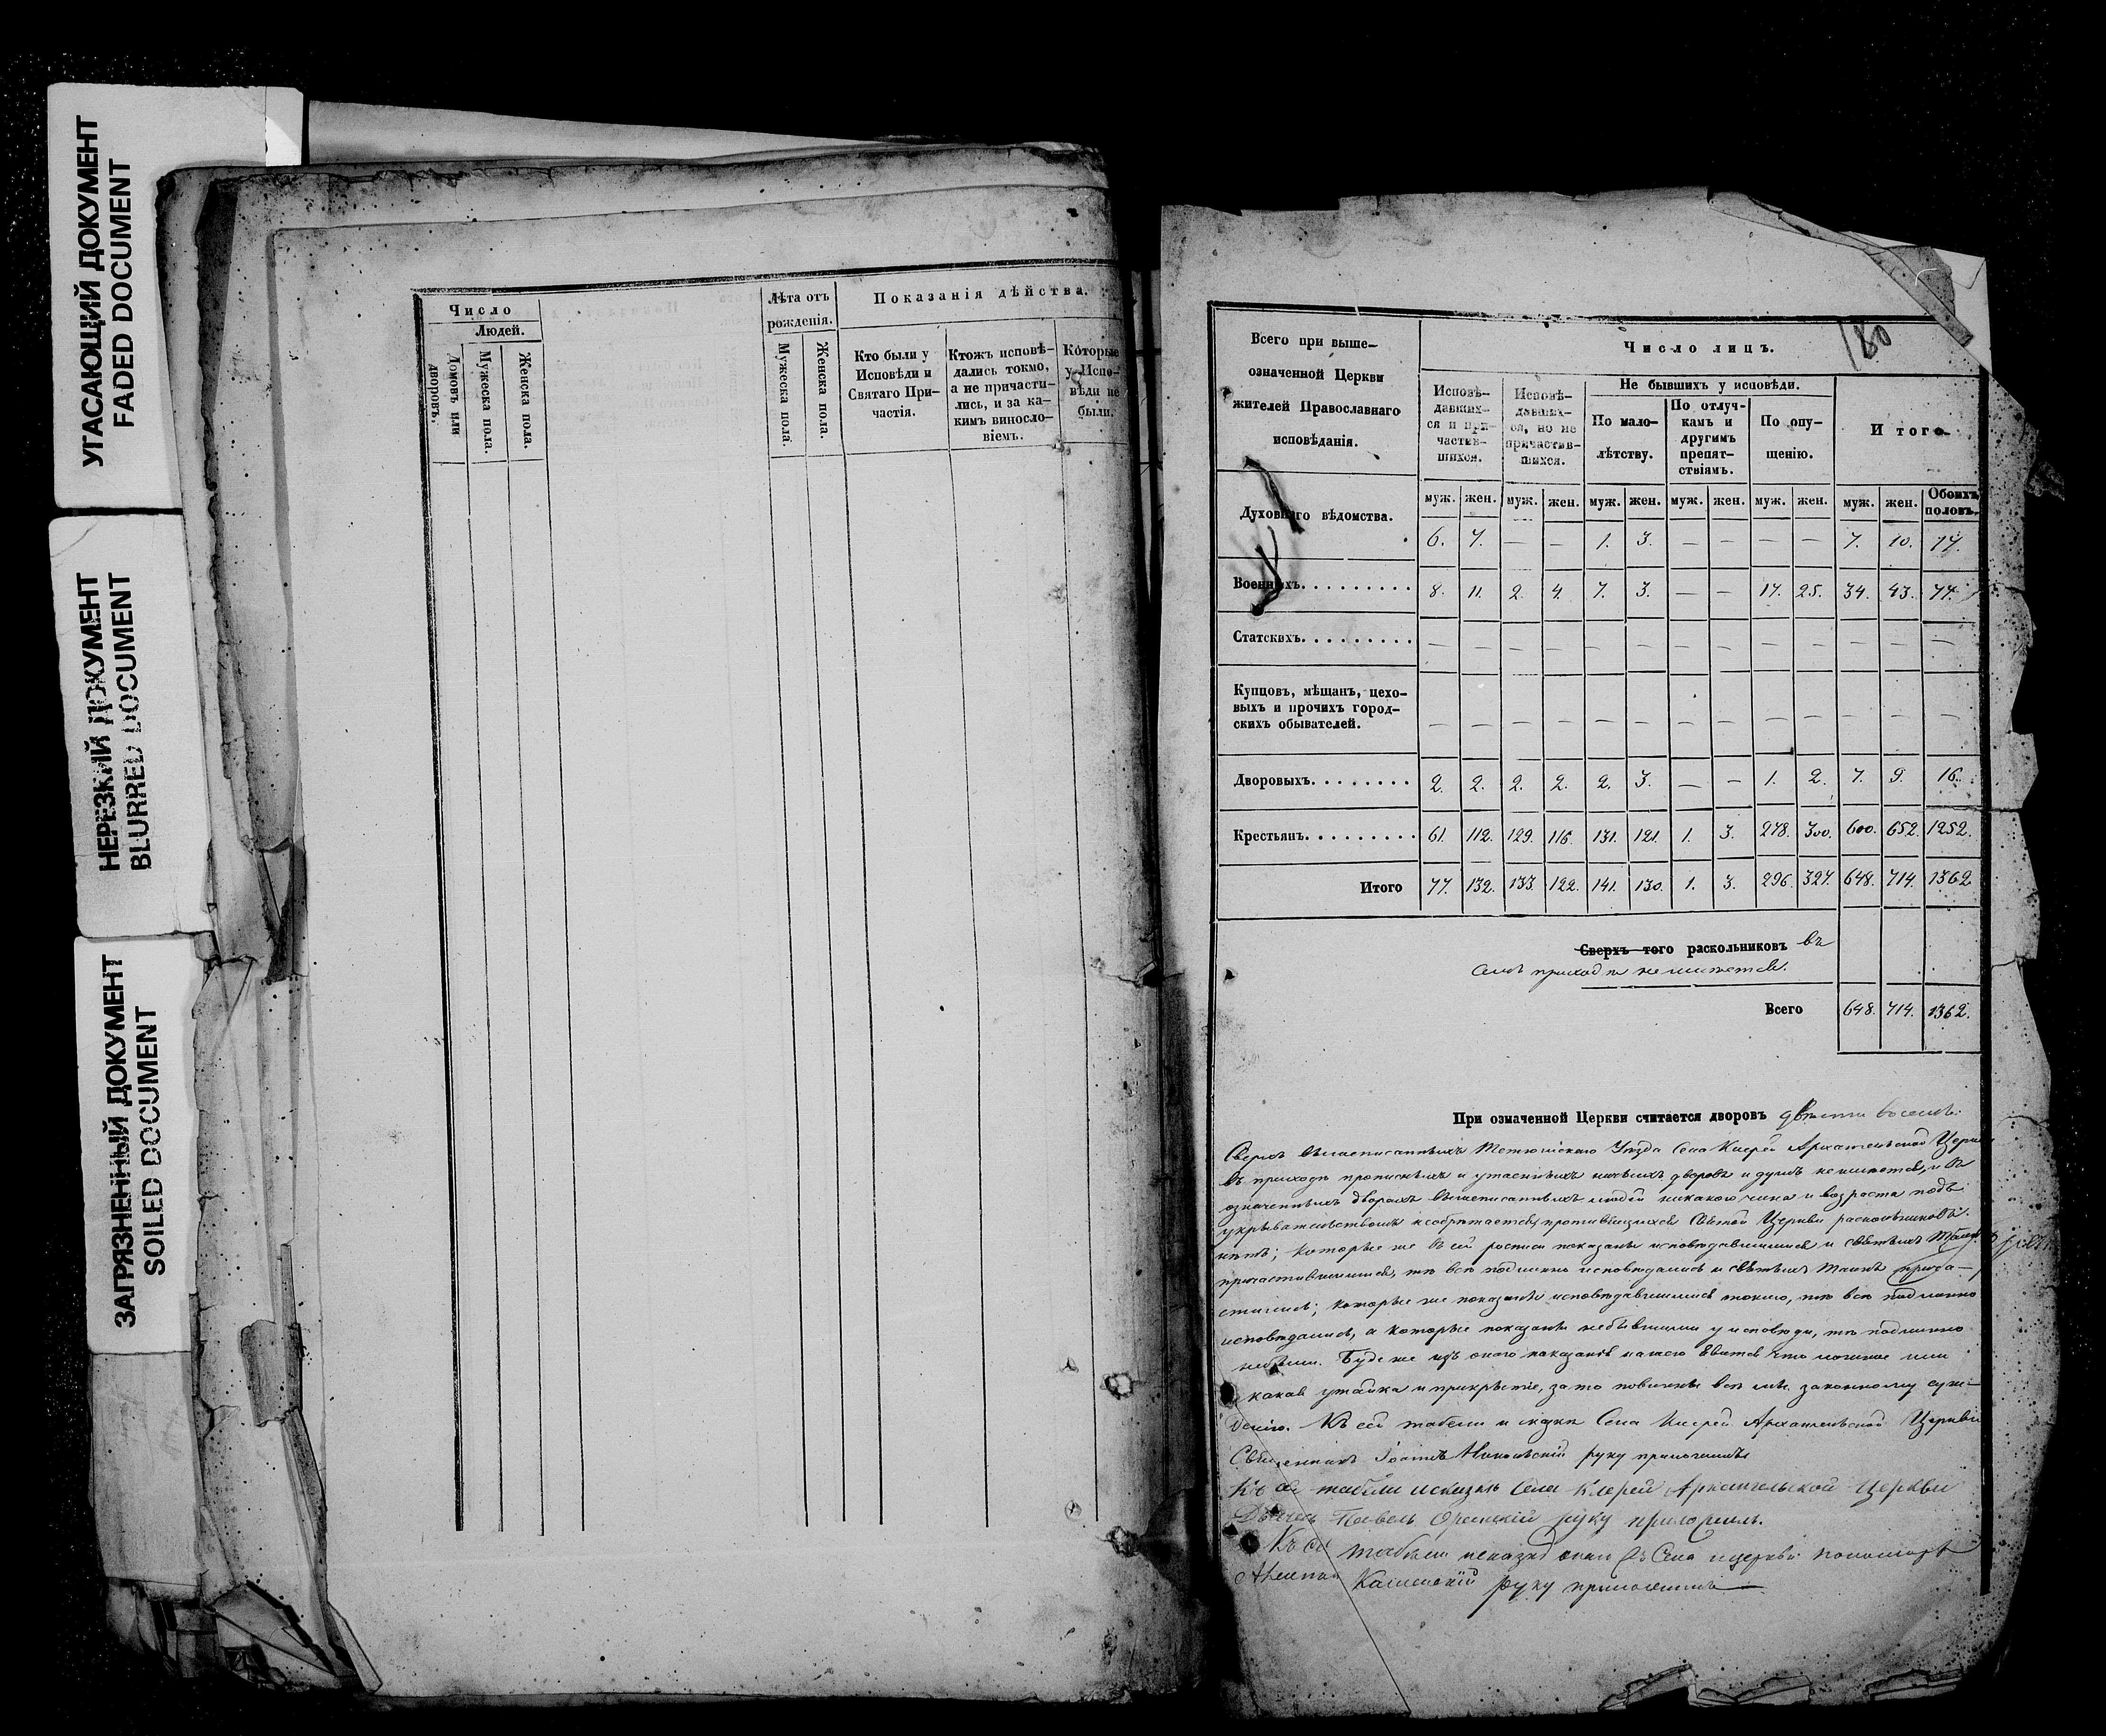 УГАСАЮЩИЙ ДОКУМЕНТ
FADED DOCUMENT
НЕРЕЗКИЙ ДОКУМЕНТ
BLURRED DOCUMENT
ЗАГРЯЗНЕННЫЙ ДОКУМЕНТ
SOILED DOCUMENT
Число
Людей.
Домовъ или дворовъ.
Мужеска пола.
Женска пола.
Лѣта отъ
рожденія.
Мужеска пола.
Женска пола.
Показанія дѣйства.
Кто были у
Исповѣди и
Святаго При-
частія.
Ктожъ исповѣ-
дались токмо,
а не причасти-
лись, и за ка-
кимъ винosло-
віемъ.
Которые
у Испо-
вѣди не
были.
180
Всего при выше-
означенной Церкви
жителей Православнаго
исповѣданія.
Число лицъ.
Исповѣ-
давших-
ся и при-
частив-
шихся.
Исповѣ-
давших-
ся, но не
причастив-
шихся.
Не бывшихъ у исповѣди.
По мало-
лѣтству.
По отлуч-
камъ и
другимъ
препят-
ствіямъ.
По опу-
щенію.
Итого
муж. жен. муж. жен. муж. жен. муж. жен. муж. жен. муж. жен. Обоихъ половъ.
Духовнаго вѣдомства. 6. 7. — — 1. 3. — — — — 7. 10. 17.
Военныхъ......... 8. 11. 2. 4. 7. 3. — — 17. 25. 34. 43. 77.
Статскихъ......... — — — — — — — — — — — — —
Купцовъ, мѣщанъ, цехо-
выхъ и прочихъ город-
скихъ обывателей. — — — — — — — — — — — — —
Дворовыхъ........ 2. 2. 2. 2. 2. 3. — — 1. 2. 7. 9. 16.
Крестьянъ......... 61. 112. 129. 116. 131. 121. 1. 3. 278. 300. 600. 652. 1252.
Итого 77. 132. 133. 122. 141. 130. 1. 3. 296. 327. 648. 714. 1362
Сверхъ того раскольниковъ въ
семъ приходѣ не имѣется.
Всего 648. 714. 1362.
При означенной Церкви считается дворовъ двѣсти восемь.
Сверхъ вышеписанныхъ Тетюшскаго Уѣзда Села Архангельской Церкви
въ приходѣ прописныхъ и утаенныхъ никакихъ дворовъ и душъ не имѣется, и въ
означенныхъ дворахъ вышеписанныхъ людей никакого чина и возраста подъ
укрывательствомъ необрѣтается, противящихся Святой Церкви раскольниковъ
нѣтъ; которые же въ сей росписи показаны исповѣдавшимися и святыхъ Таинъ
причастившимися, тѣ всѣ подлинно исповѣдались и святыхъ Таинъ прича-
стились; которые же показаны исповѣдавшимися токмо, тѣ всѣ подлинно
исповѣдались, а которые показаны небывшими у исповѣди, тѣ подлинно
небыли. Буде же изъ сего показанія нашего явится что ложное или
какая утайка и прикрытіе, за то повинны всѣ мы законному суж-
денію. Къ сей табели и сказкѣ Села Архангельской Церкви
Священникъ Іоаннъ руку приложилъ
Къ сей табели и сказкѣ Села Архангельской Церкви
Павелъ руку приложилъ.
Къ сей табели и сказкѣ Села и церкви пономарь
руку приложилъ